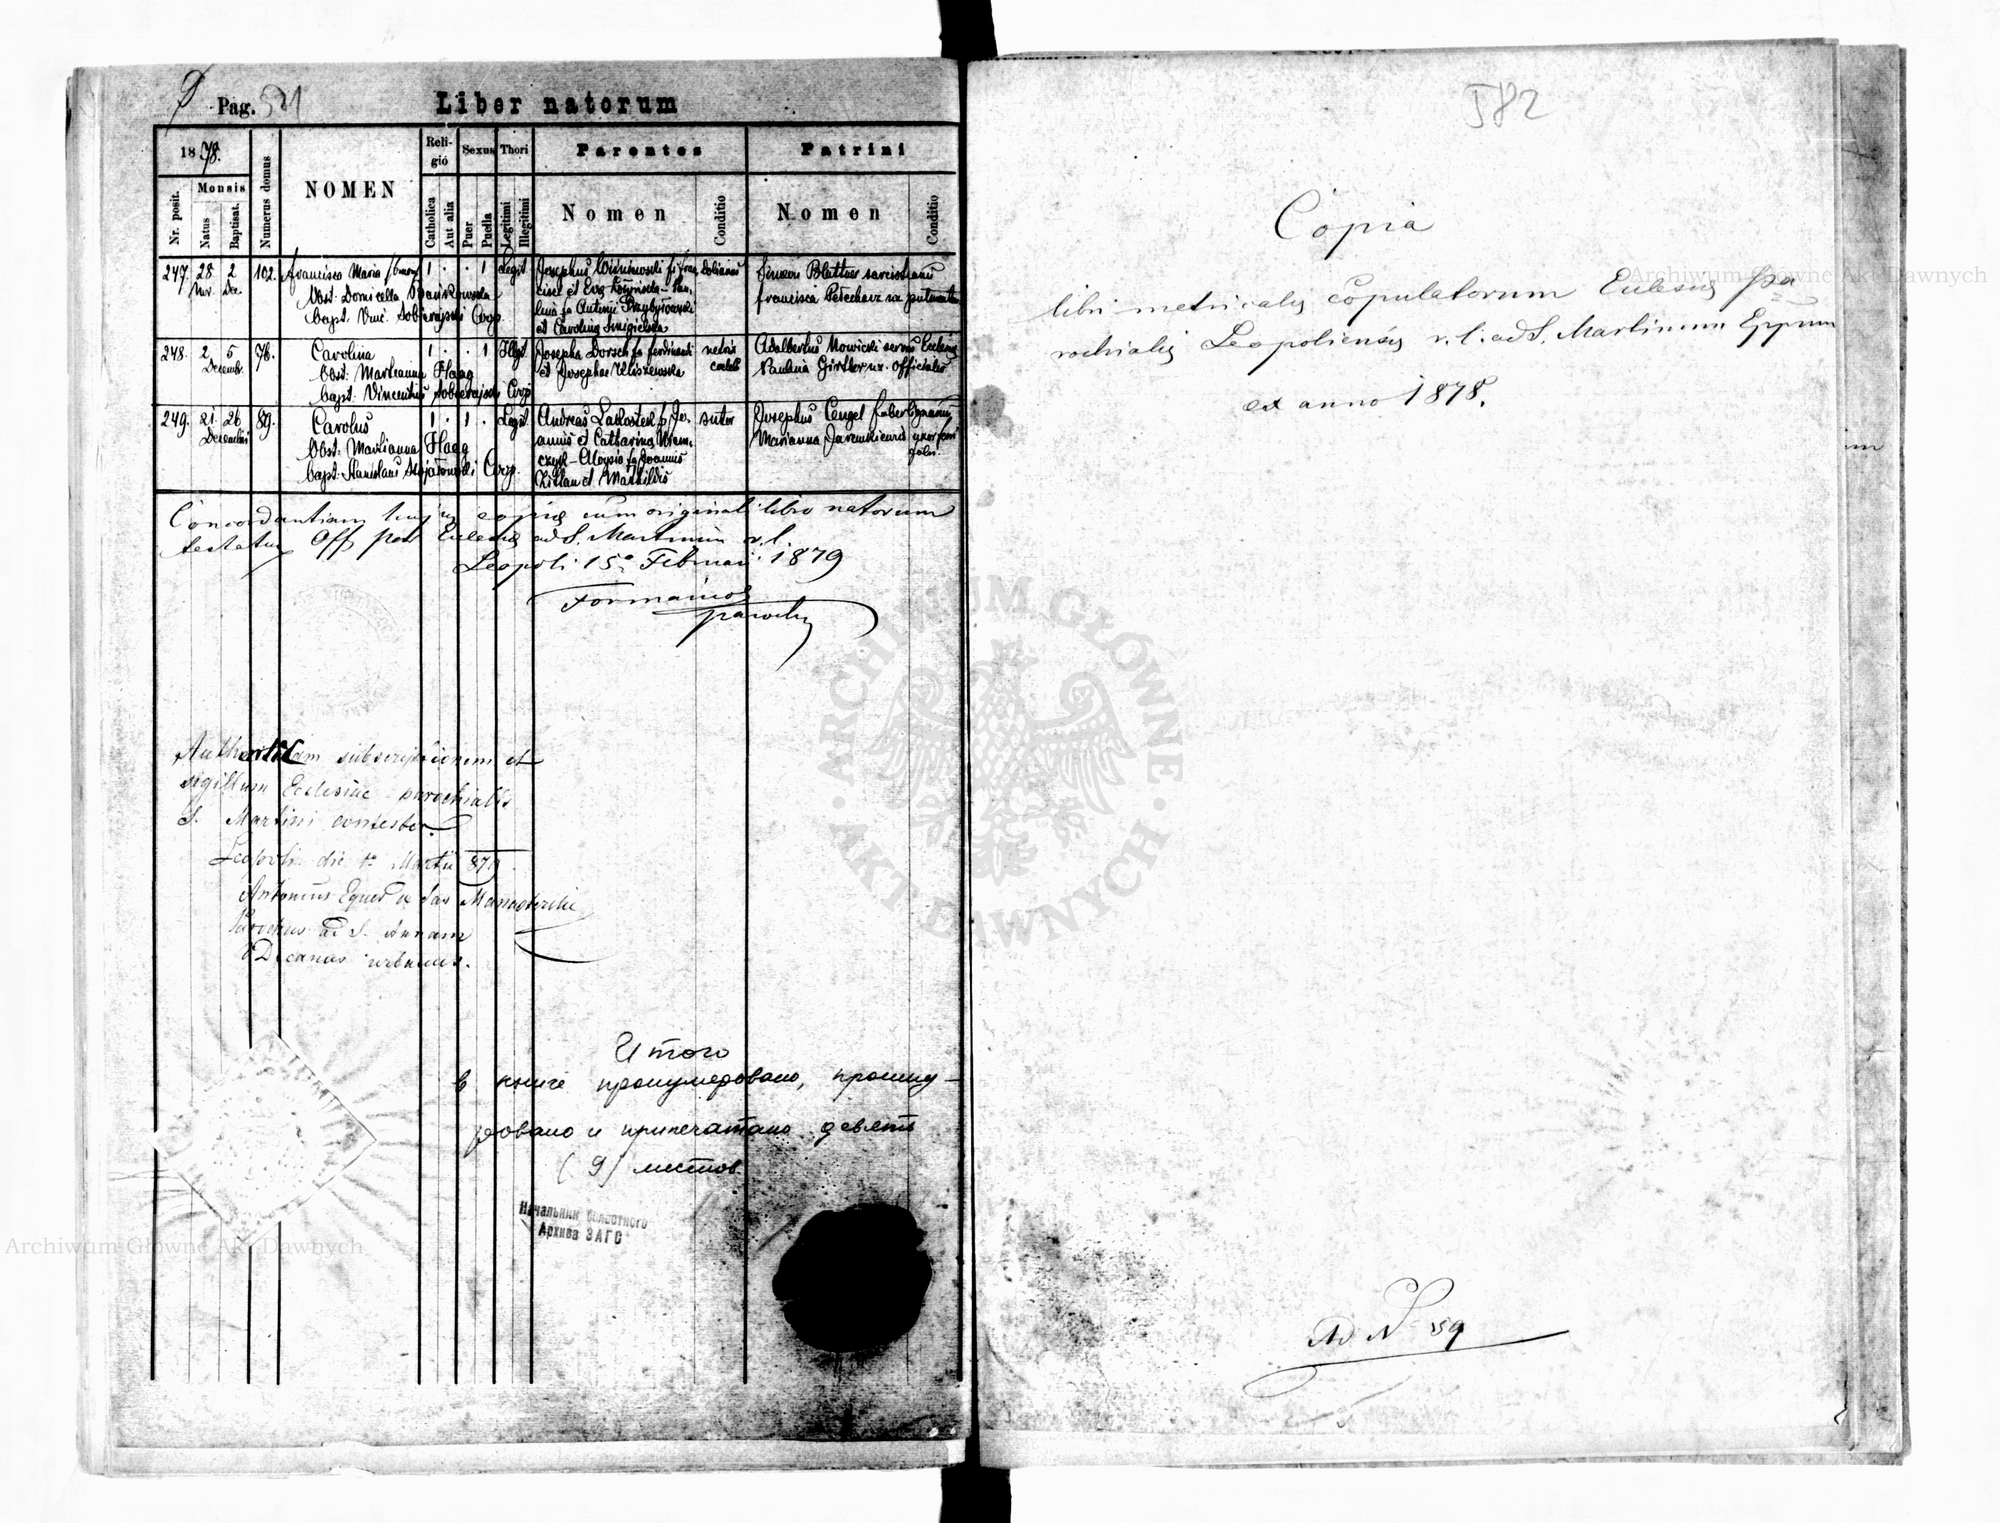 9 Pag. 581 Liber natorum
1878.
Nr. posit.
Mensis
Natus
Baptisat.
Numerus domus
NOMEN
Religio
Catholica
Aut alia
Sexus
Puer
Puella
Thori
Legitimi
Illegitimi
Parentes
Nomen
Conditio
Patrini
Nomen
Conditio
247. 28 Nov. 2 Dec. 102. Francisca Maria
Obst. Domicella
bapt. Vinc. Sobierajski Coop.
1 . . 1 Legit.
Josephus Wiśniowski f. Fran
cisci et Eva
lina fa Antonii Przybyłowski
et Carolina Smigielska
Simeon Blattner
Francisca Pełecharz ux
248. 2 5 Decemb. 76. Carolina
Obst. Marianna Haag
bapt. Vincentius Sobierajski Coop
1 . . 1 Illegit.
Josepha Dorsch fa Ferdinandi
et Josephae Kliszewska
Adalbertus Nowicki servus Ecclesiae
Paulina Girtler ux. officialis
249. 21. 26 Decembris 89. Carolus
Obst. Marianna Haag
bapt. Stanislaus Stojałowski Coop.
1 . 1 . Legit.
Andreas Latkostek f. Jo.
annis et Catharina Niem.
czyk - Aloysia fa Joannis
Kittan et Mathildis
sutor
Josephus Cengel faber lignarius
Marianna Jaremkiewicz uxor
Concordantiam hujus copiae cum originali libro natorum
testatur Off. par. Ecclesiae ad S. Martinum r. l.
Leopoli 15. Februarii 1879
Formaniosz
parochus
Authenticam subscriptionem et
sigillum Ecclesiae parochialis
S. Martini contestor.
Leopoli die 1a Martii 879.
Antonius Eques de Manasterski
Parochus ad S. Annam
Decanus urbanus.
Итого
в книге пронумеровано, прошну-
ровано и припечатано девять
(9) листов
Начальник областного
Архива ЗАГС
582
Copia
libri metricalis Copulatorum Ecclesiae pa
rochialis Leopoliensis r. l. ad S. Martinum Eppum
ex anno 1878.
Ad N 159
Archiwum Główne Akt Dawnych
Archiwum Główne Akt Dawnych
ARCHIWUM GŁÓWNE
· AKT DAWNYCH ·